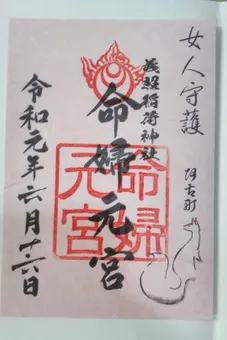 女人守護
阿古町
義照稲荷神社
命婦元宮
命婦
元宮
令和元年六月廿六日